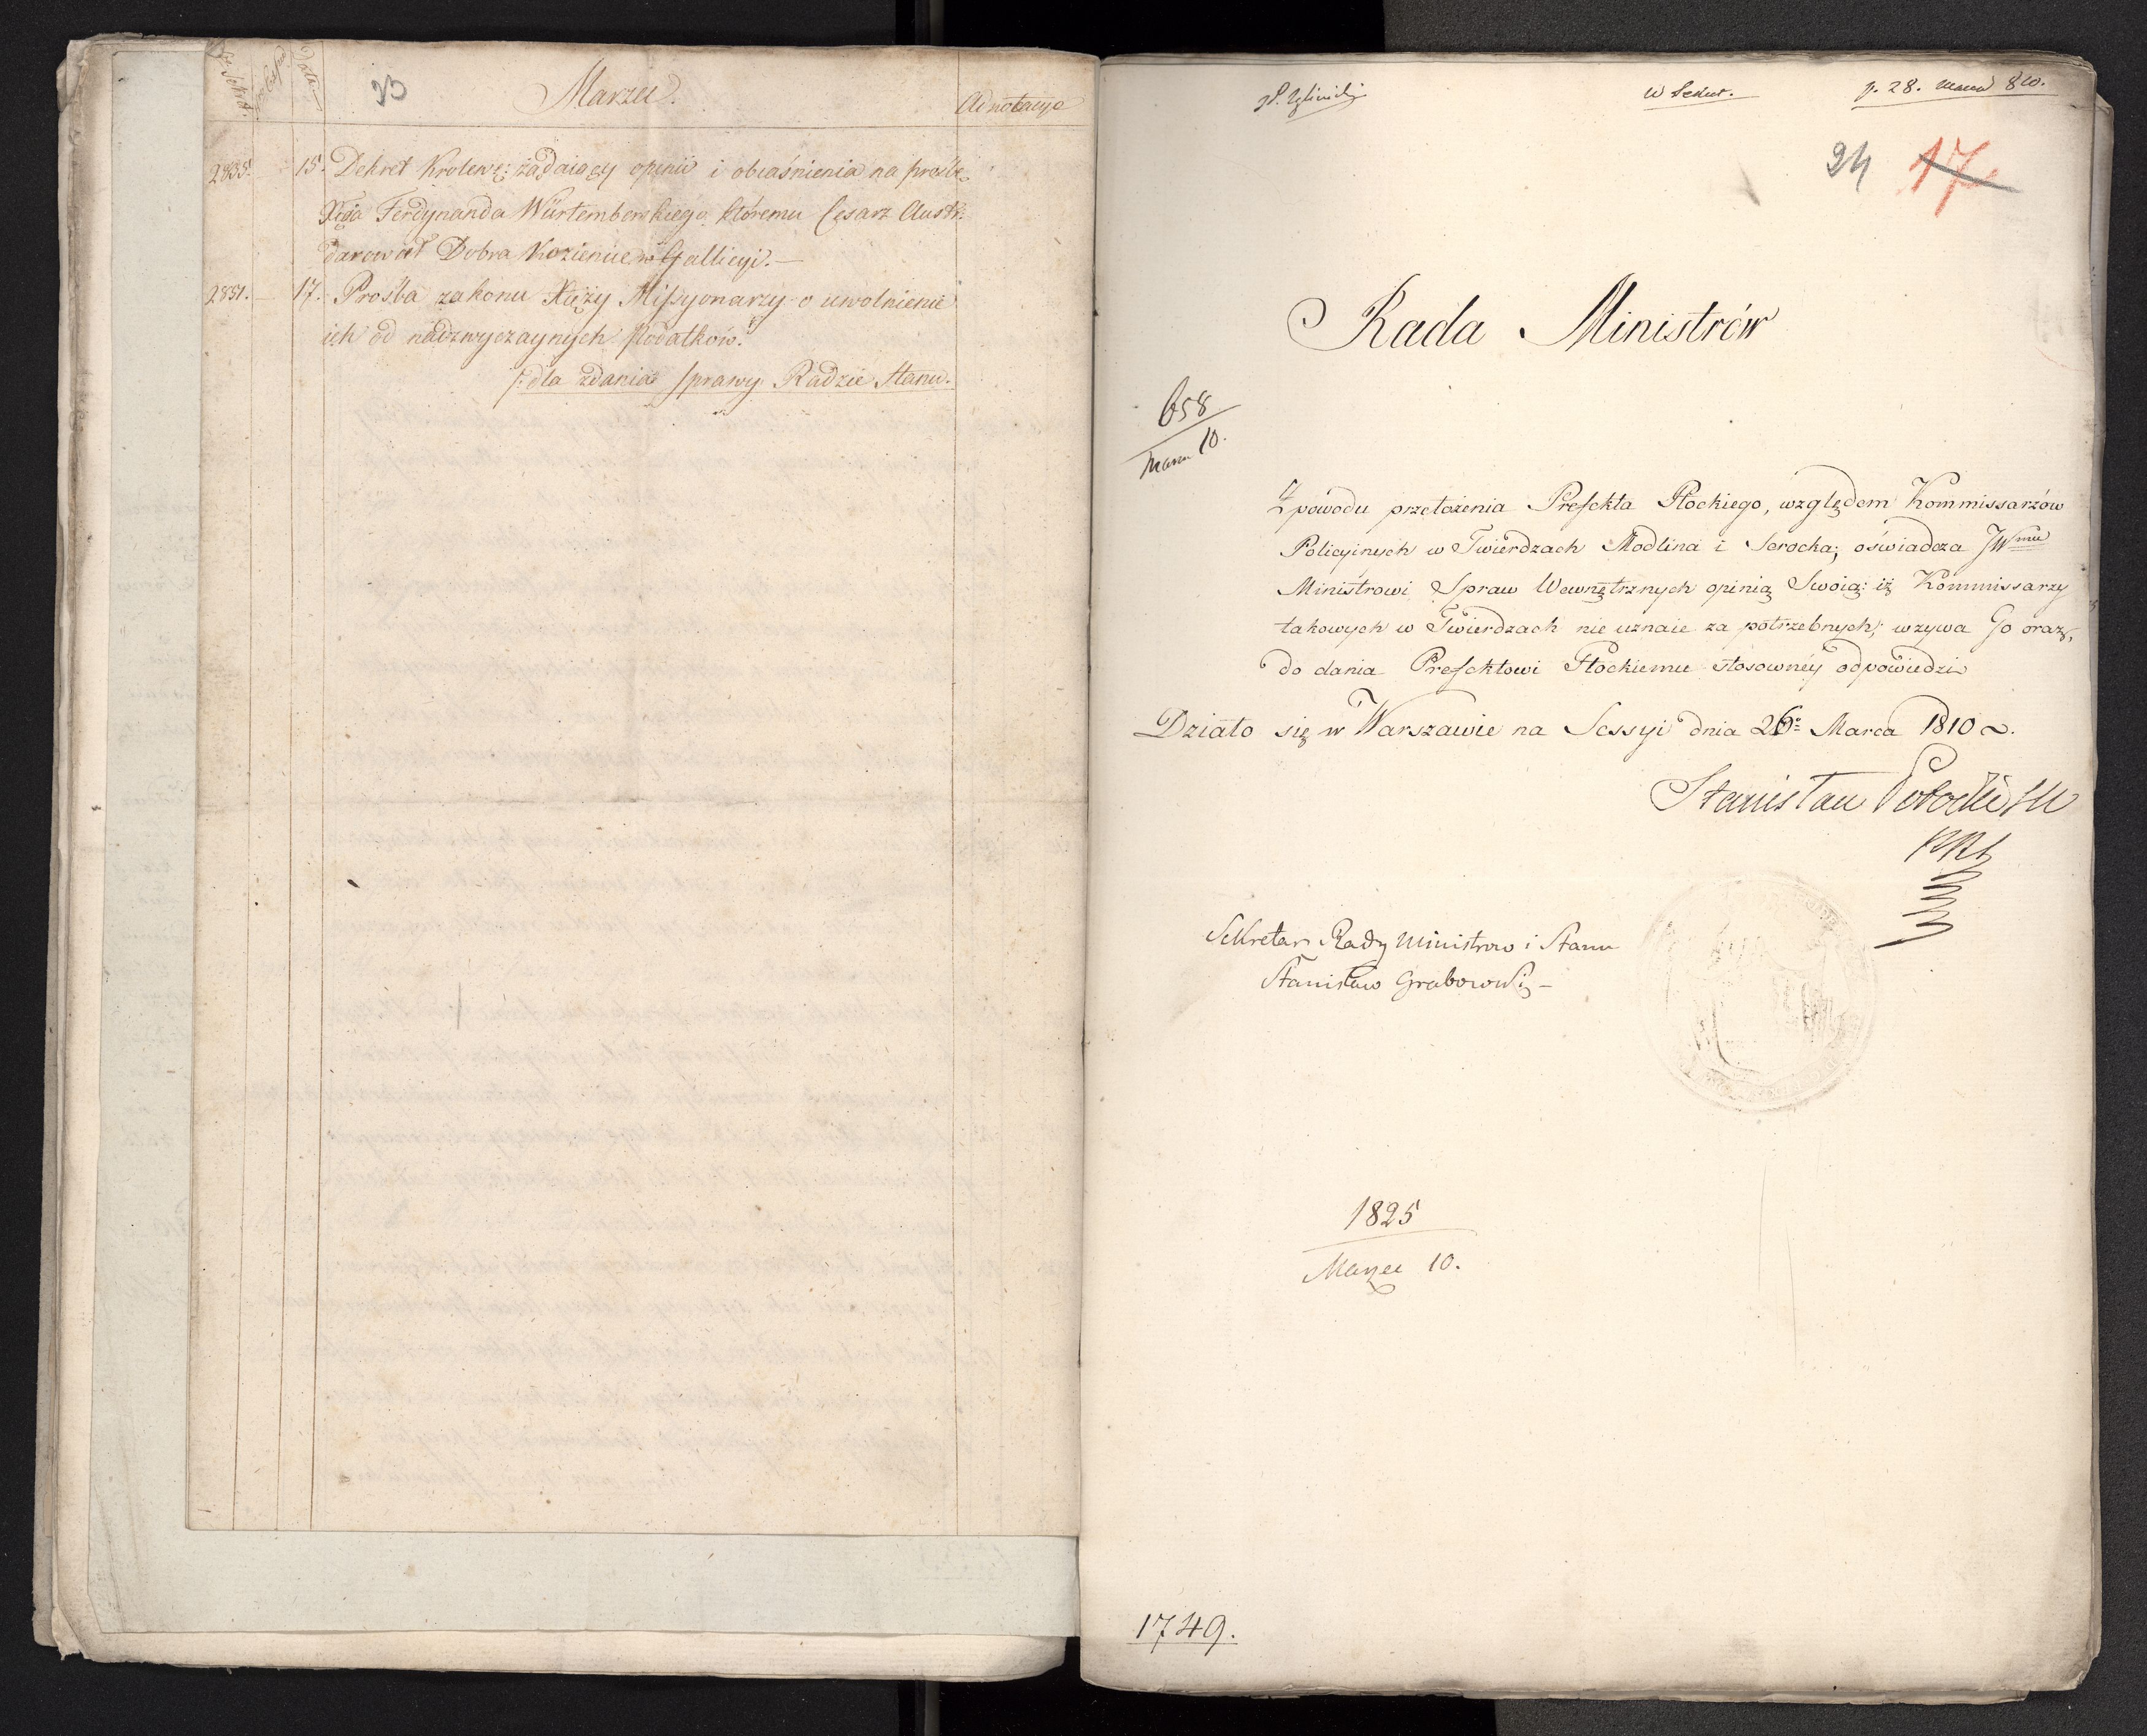 23
Marzec.
Data
Adnotacye
2835. 15. Dekret Krolews: żądaiący opinii i obiaśnienia na prośbę
Xcia Ferdynanda Würtemberskiego, któremu Cesarz Austr:
darował Dobra Kozienice w Gallicyi.—
2851. — 17. Prośba zakonu Xięży Missyonarzy o uwolnienie
ich od nadzwyczaynych Podatków.
/: dla zdania sprawy Radzie Stanu.
W Sekret.
p. 28. Marca 810.
24 17
Rada Ministrów
658
Marca 10.
Z powodu przełożenia Prefekta Płockiego, względem Kommissarzów
Policyinych w Twierdzach Modlina i Serocka; oświadcza JWmu
Ministrowi Spraw Wewnętrznych opinią Swoią: iż Kommissarzy
takowych w Twierdzach nie uznaie za potrzebnych; wzywa Go oraz,
do dania Prefektowi Płockiemu stosownéy odpowiedzi
Działo się w Warszawie na Sessyi dnia 26o Marca 1810
Stanisław Potocki
Sekretarz Rady Ministrow i Stanu
Stanisław Grabowski —
1825
Marzec 10.
1749.